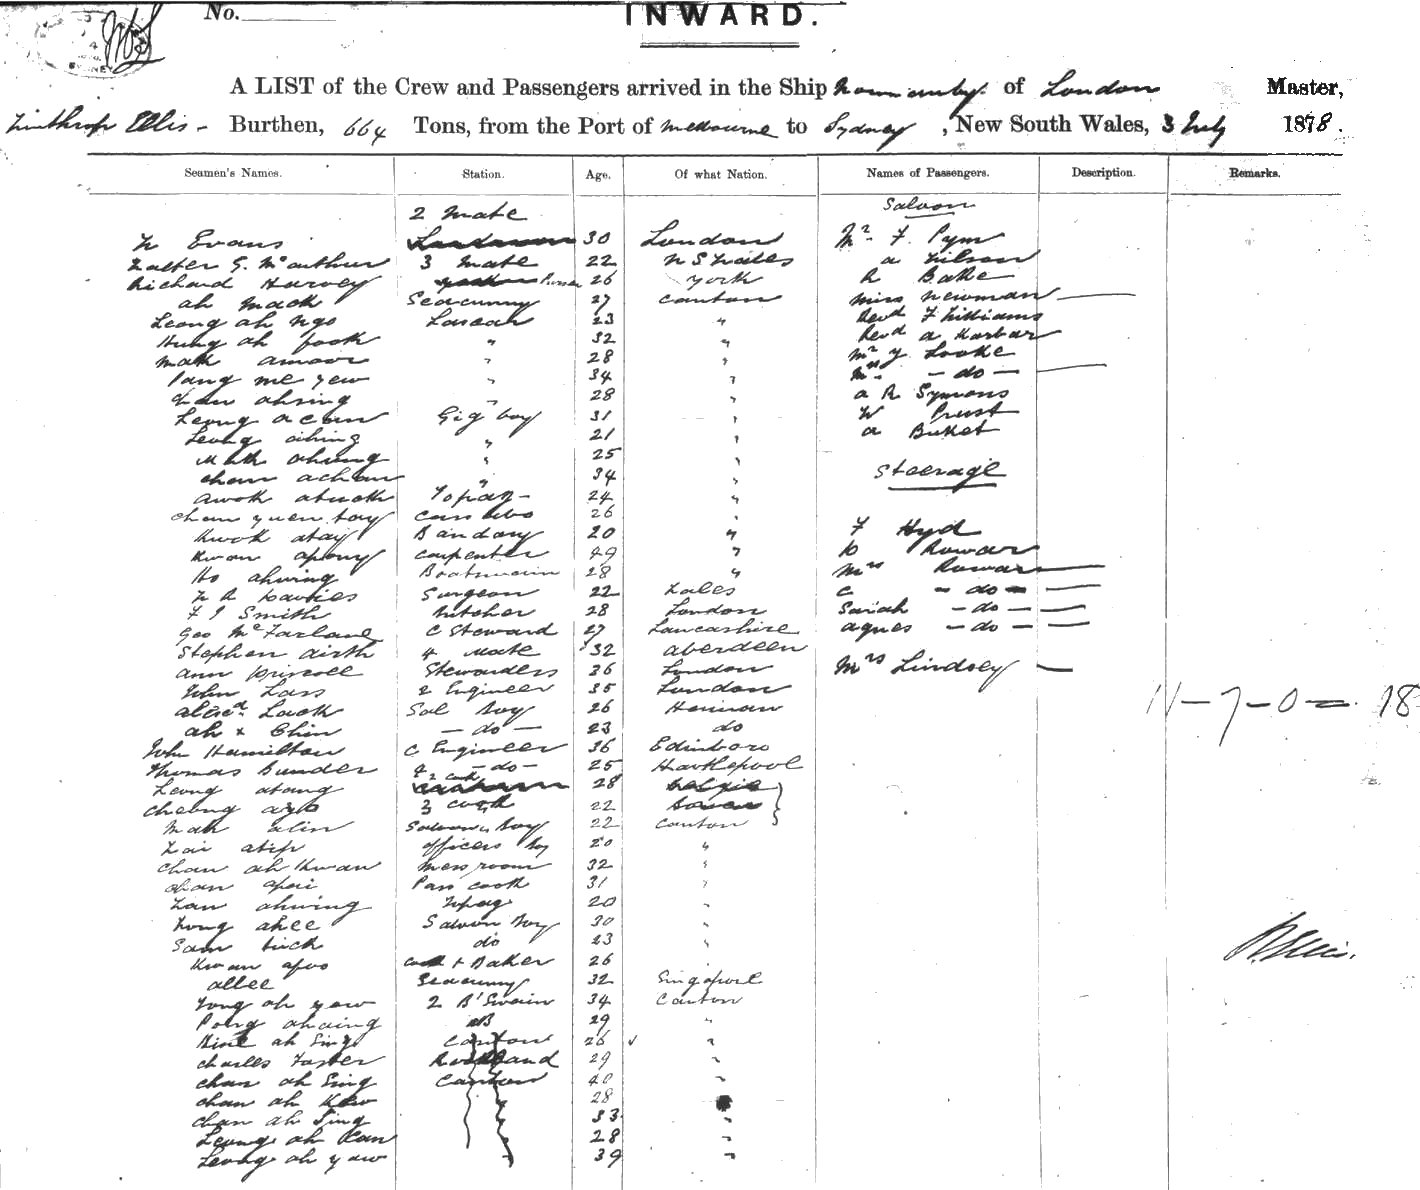 No.
INWARD.
A LIST of the Crew and Passengers arrived in the Ship Normanby of London Master,
Winthrop Ellis - Burthen, 664 Tons, from the Port of Melbourne to Sydney, New South Wales, 3 July 1878.
Seamen's Names. Station. Age. Of what Nation. Names of Passengers. Description. Remarks.
2 Mate Saloon
W Evans 30 London Mr F. Pym
Walter G. McArthur 3 Mate 22 N S Wales A Wilson
Richard Harvey Purser 26 York R Bake
Ah Mack Seacunny 27 Canton Miss Newman
Leong Ah Ngo Lascar 23 " Revd F Williams
Hung Ah Fook " 32 " Revd A Harbar
Mak Amoor " 28 " Mr Y Locke
Pang Me Yew " 34 " Mrs - do -
Chan Ahsing " 28 " A R Symons
Leong Acun Gig boy 31 " W Prust
Leong Ahing " 21 " A Buket
Mak Ahung " 25 "
Chan Achan " 34 " Steerage
Awok Atuck Topaz - 24 "
Chan Yuen Tay Cass 26 "
Kwok Atay Bandary 20 " F Hyd
Kwan Apong Carpenter 49 " Rowar
Ho Ahwing Boatswain 28 " Mrs Rowar
W R Davies Surgeon 22 Wales C - do -
F J Smith Butcher 28 London Sarah - do -
Geo McFarlane C Steward 27 Lancashire Agnes - do -
Stephen Airth 4 Mate 32 Aberdeen
Ann Driscoll Stewardess 36 London Mrs Lindsey
John Lass 2 Engineer 35 London
Alexd. Lack Sal Boy 26 11-7-0 = 18
Ah Chin - do - 23 do
John Hamilton C Engineer 36 Edinboro
Thomas Bunder 4 - do - 25 Hartlepool
Leong Atong 2 cook 28
Cheong Ayo 3 cook 22
Mak Alin Saloon Boy 22 Canton
Atip Officers Boy 20 "
Chan Ah Kwan Mess room 32 "
Chan Apai Pan cook 31 "
Lan Ahwing Topaz 20 "
Wong Ahee Saloon Boy 30 "
Sam do 23 "
Kwan Apoo Cook + Baker 26 "
Allee Seacunny 32 Singapore
Yong Ah Yow 2 B'Swain 34 Canton
Pong Ahaing AB 29 "
Ah Sing Canton 26 "
Charles Foster 29 "
Chan Ah Sing Canton 40 "
Chan Ah Kew 28
Chan Ah Sing 33 "
Leong Ah Kan 28 "
Leong Ah Yaw 39 "
W. Ellis.